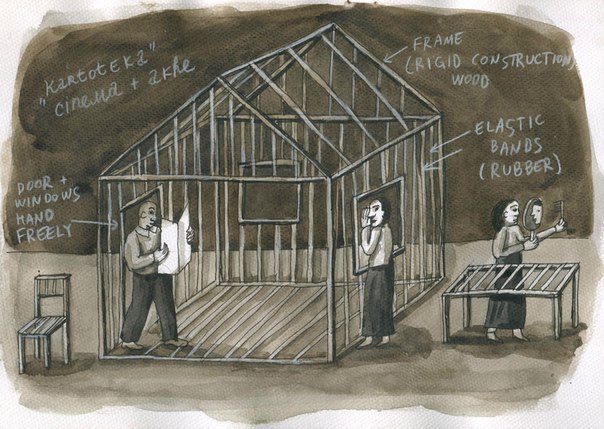 "Kartoteka"
"cinema + akhe
FRAME
(RIGID CONSTRUCTION)
WOOD
ELASTIC
BANDS
(RUBBER)
DOOR +
WINDOWS
HAND
FREELY